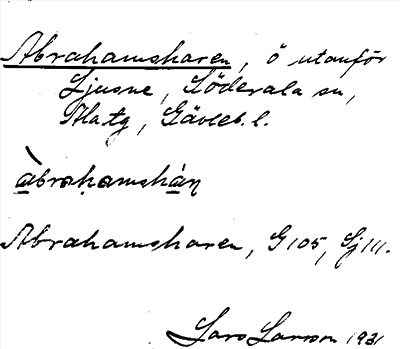 Abrahamsharen, ö utanför
Ljusne, Söderala sn,
Gävleb. l.
àbrahamshán
Abrahamsharen, G105, Sj 111.
Lars Larsson 1931